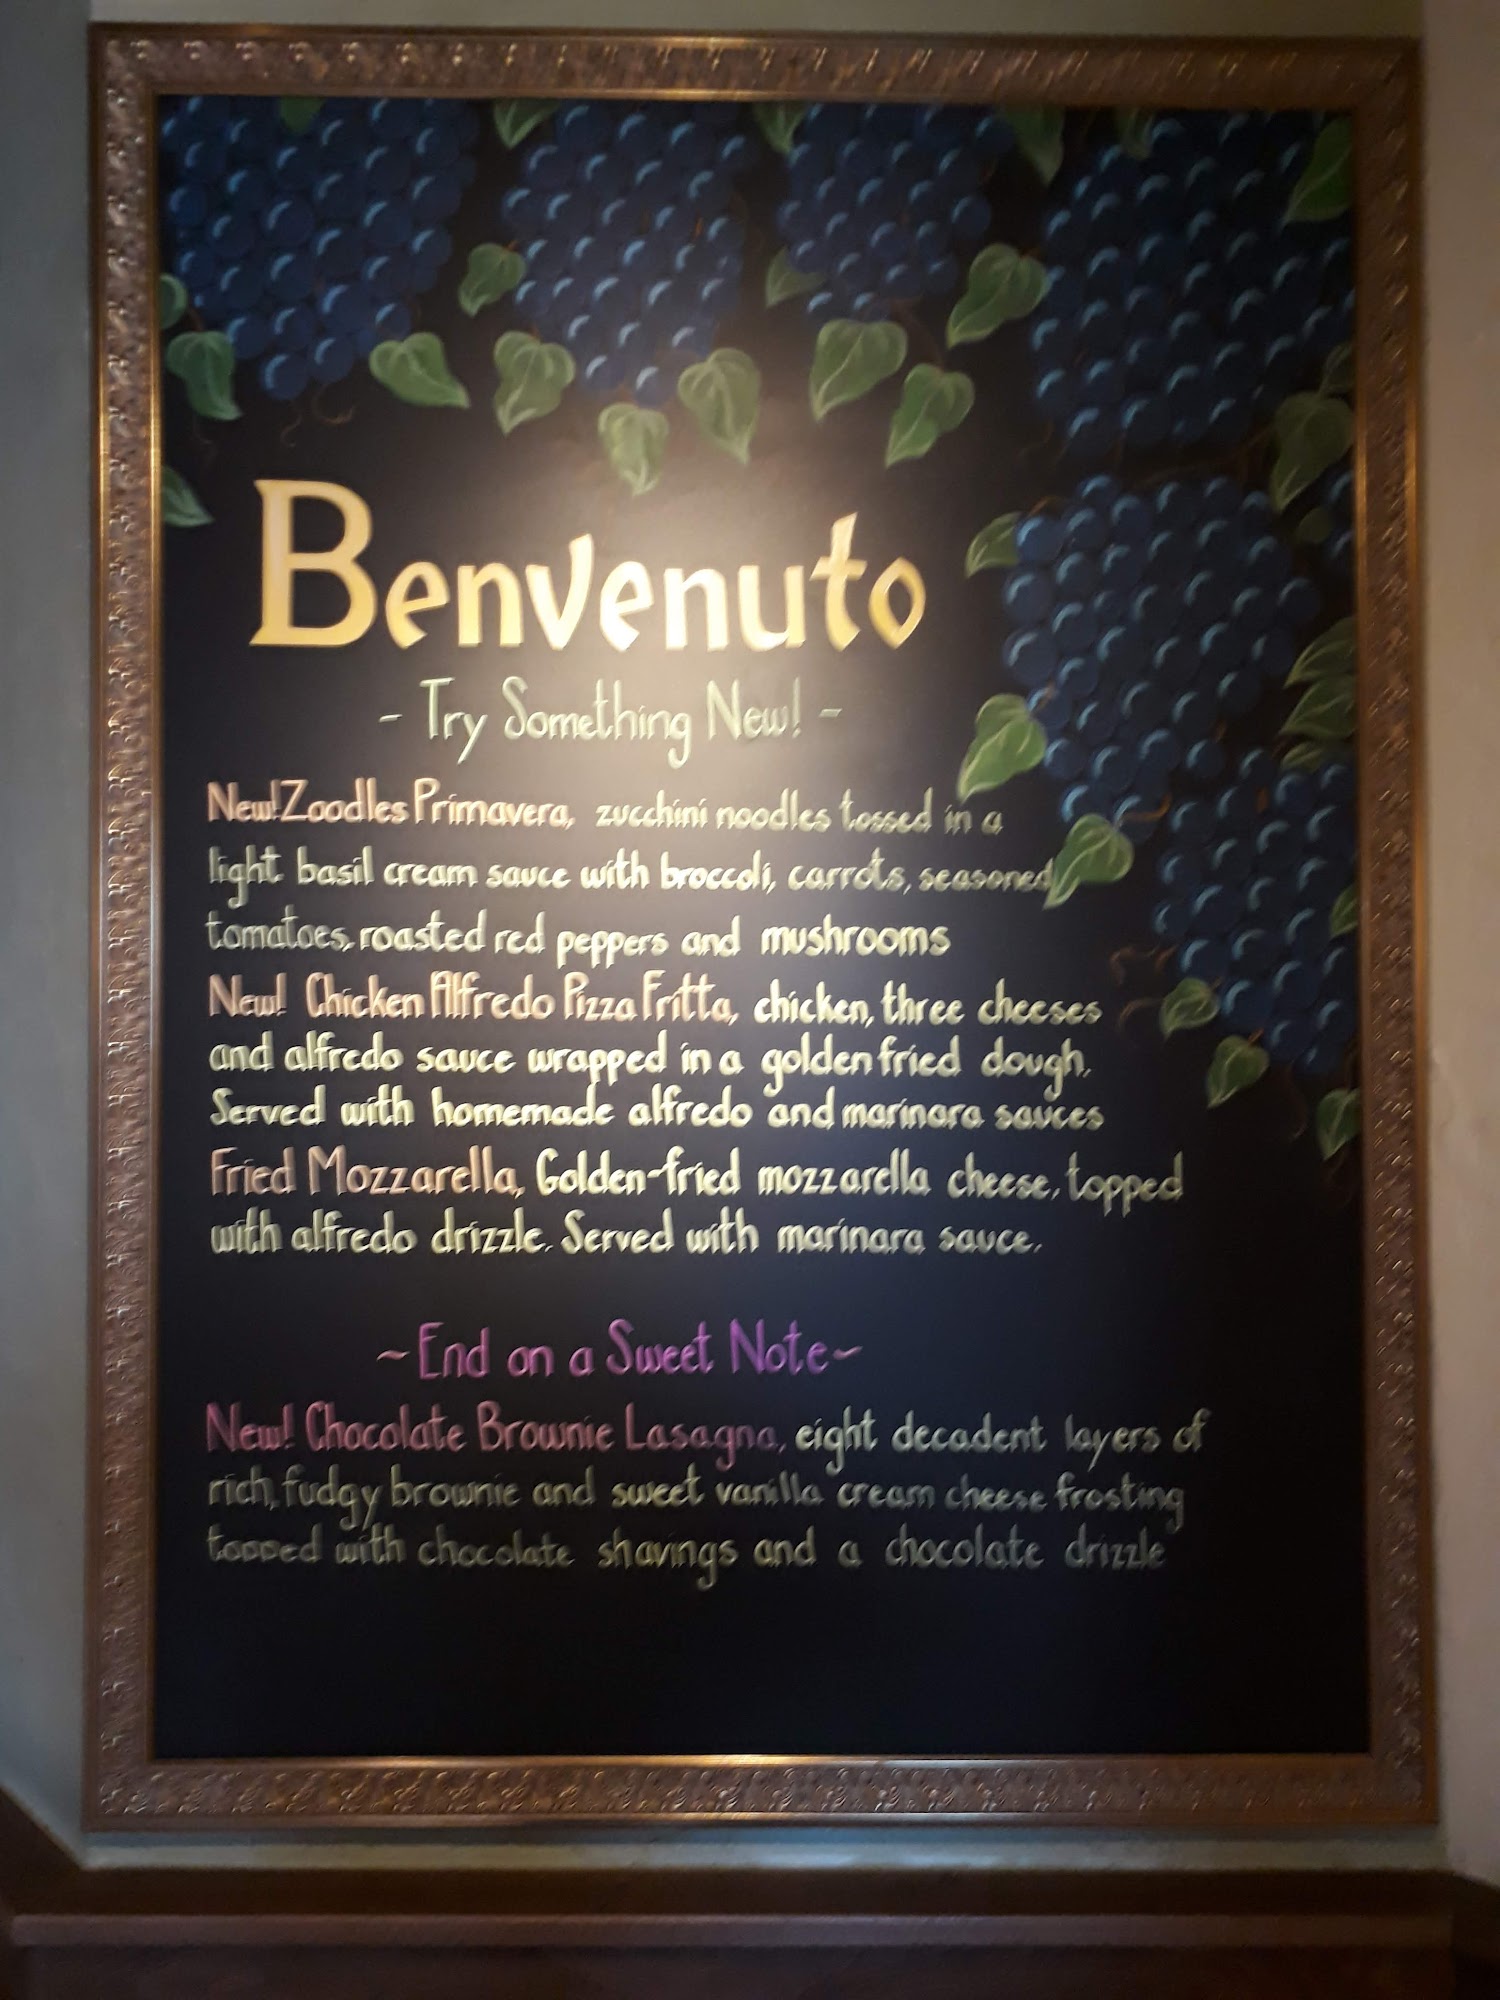 Benvenuto
- Try Something New! -
New! Zoodles Primavera, zucchini noodles tossed in a
light basil cream sauce with broccoli, carrots, seasoned
tomatoes, roasted red peppers and mushrooms
New! Chicken Alfredo Pizza Fritta, chicken, three cheeses
and alfredo sauce wrapped in a golden fried dough.
Served with homemade alfredo and marinara sauces
Fried Mozzarella, Golden-fried mozzarella cheese, topped
with alfredo drizzle. Served with marinara sauce.
~End on a Sweet Note~
New! Chocolate Brownie Lasagna, eight decadent layers of
rich, fudgy brownie and sweet vanilla cream cheese frosting
topped with chocolate shavings and a chocolate drizzle